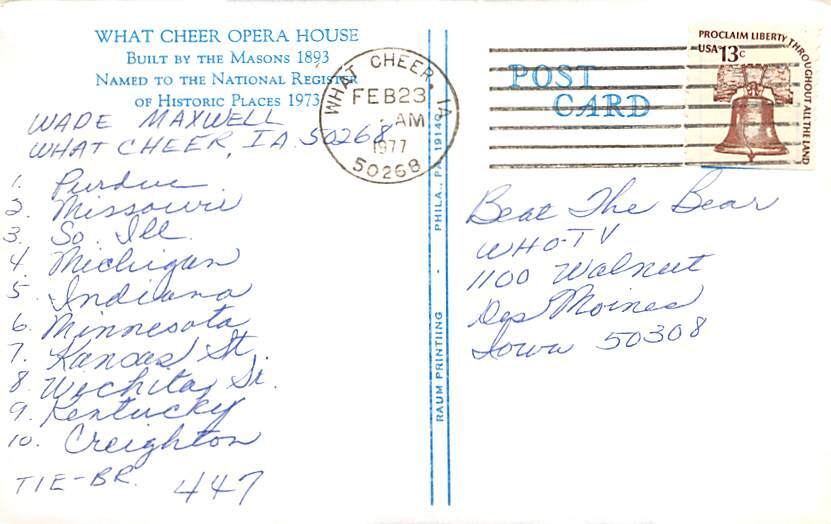 WHAT CHEER OPERA HOUSE
BUILT BY THE MASONS 1893
NAMED TO THE NATIONAL REGISTER
OF HISTORIC PLACES 1973
WADE MAXWELL
WHAT CHEER, IA 50268
1. Purdue
2. Missouri
3. So. Ill.
4. Michigan
5. Indiana
6. Minnesota
7. Kansas St.
8. Wichita St.
9. Kentucky
10. Creighton
TIE-BR. 447
WHAT CHEER, IA
FEB 23
AM
1977
50268
RAUM PRINTIING - PHILA., PA 19140
POST
CARD
PROCLAIM LIBERTY THROUGHOUT ALL THE LAND
USA 13c
Beat The Bear
WHO-TV
1100 Walnut
Des Moines
Iowa 50308